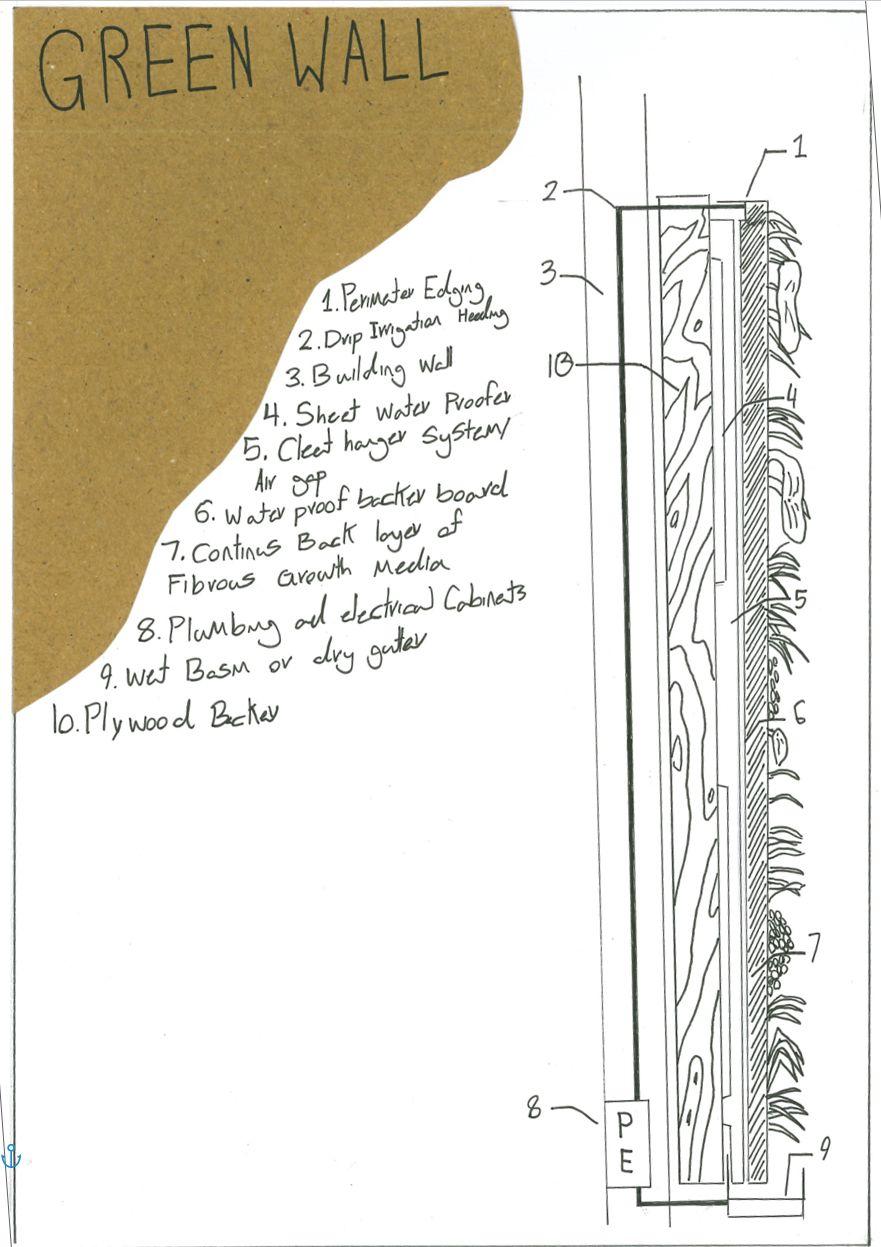 GREEN WALL
1. Perimater Edging
2. Drip Irrigation Heading
3. Building Wall
4. Sheet Water Proofer
5. Cleet hanger System/
Air gap
6. Water proof backer board
7. Continus Back layer of
Fibrous Growth Media
8. Plumbing ad electrical Cabinets
9. Wet Basin or dry gutter
10. Plywood Backer
1
2
3
10
4
5
6
7
8
P
E
9